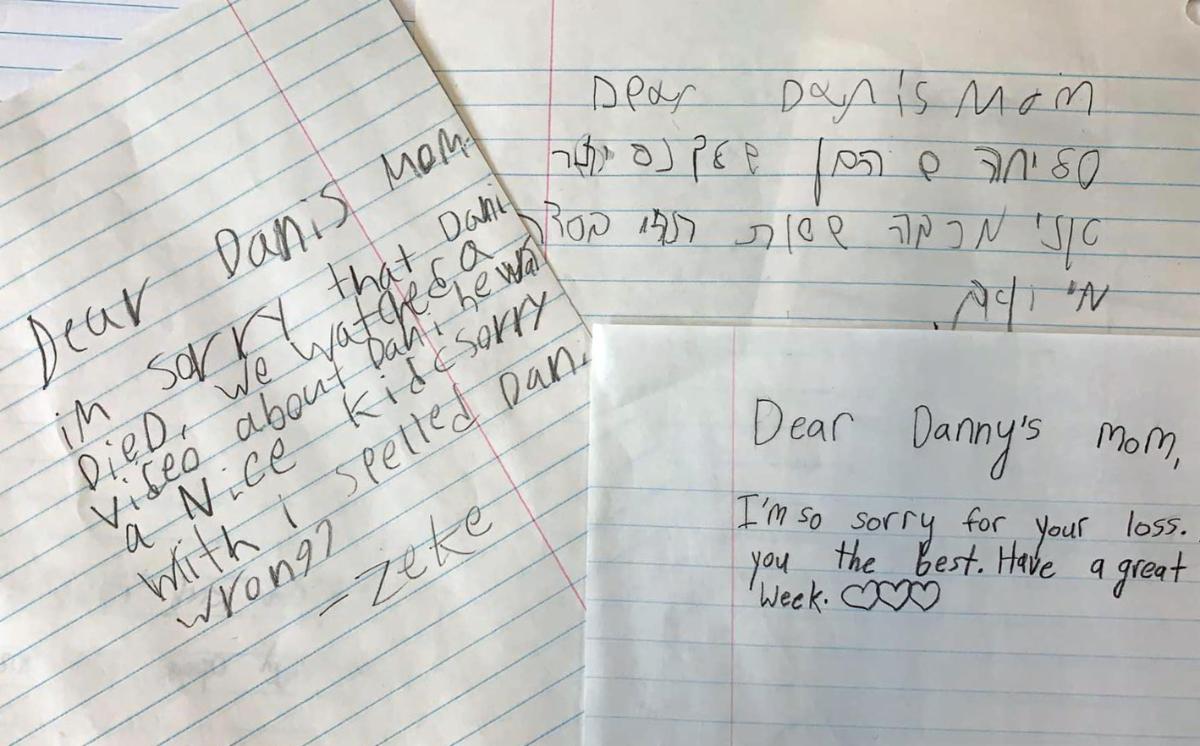 Dear Danis Mom
im sorry that Dani
DieD, we watcheS a
viSeo about Dani he wa
a Nice kid (sorry
with i spelled Dan
wrong)
- Zeke
Dear Danis Mom
סליחה ש הבן שלך
אני
Dear Danny's mom,
I'm so sorry for your loss.
you the best. Have a great
Week. ♡♡♡